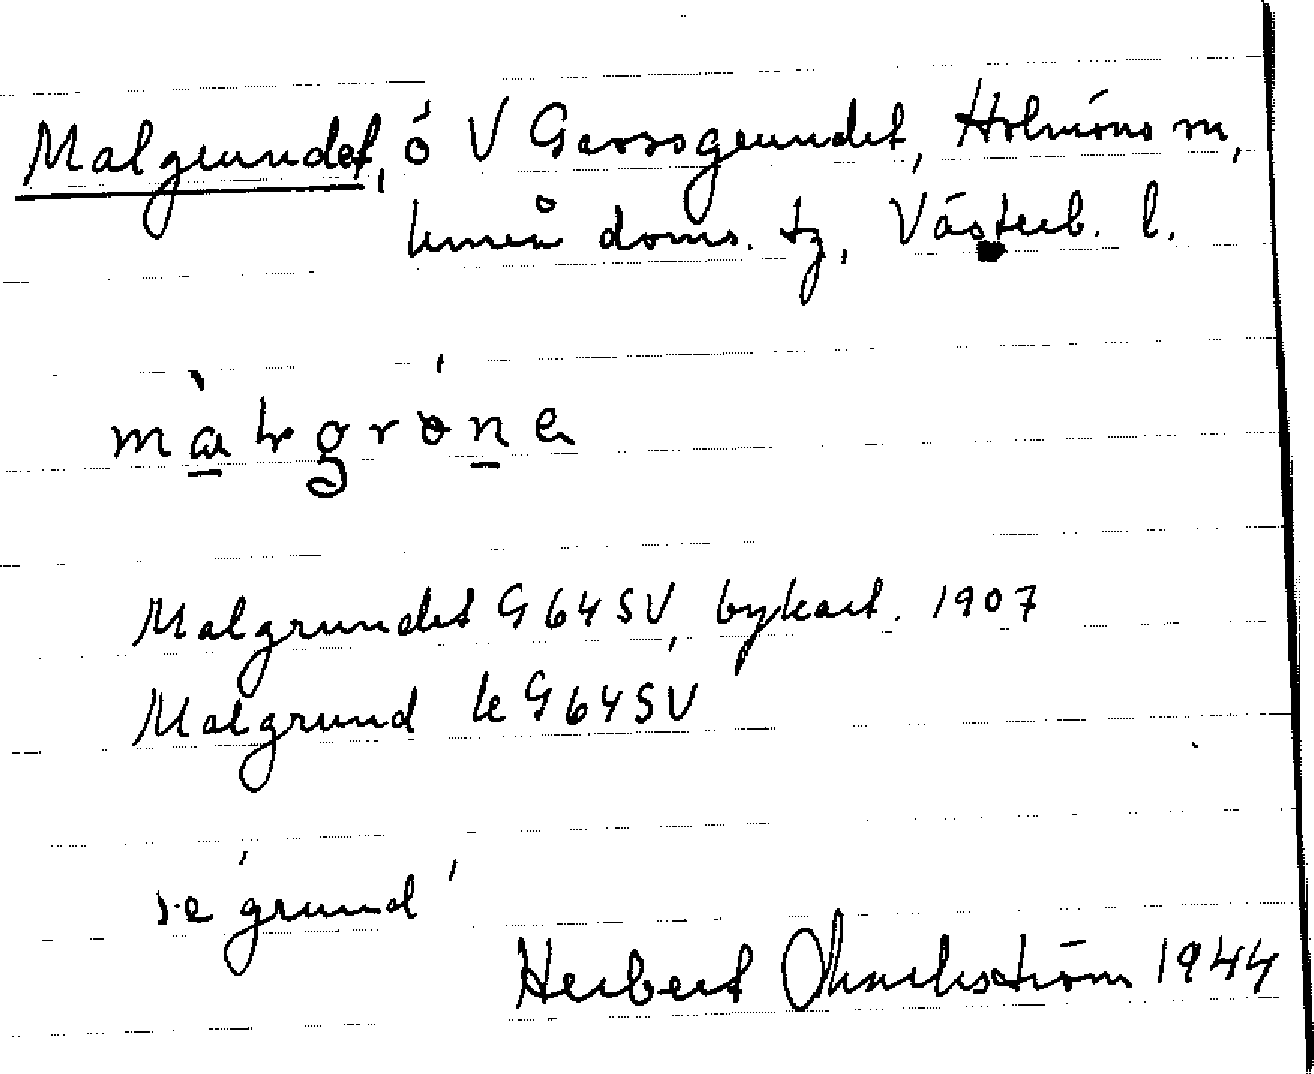 Malgrundet, ö V Garvsgrundet, Holmöns sn,
Umeå doms. tg, Västerb. l.
Malgrundet G 64 SV, bykart. 1907
Malgrund le G 64 SV
se 'grund'
Herbert Markström 1944